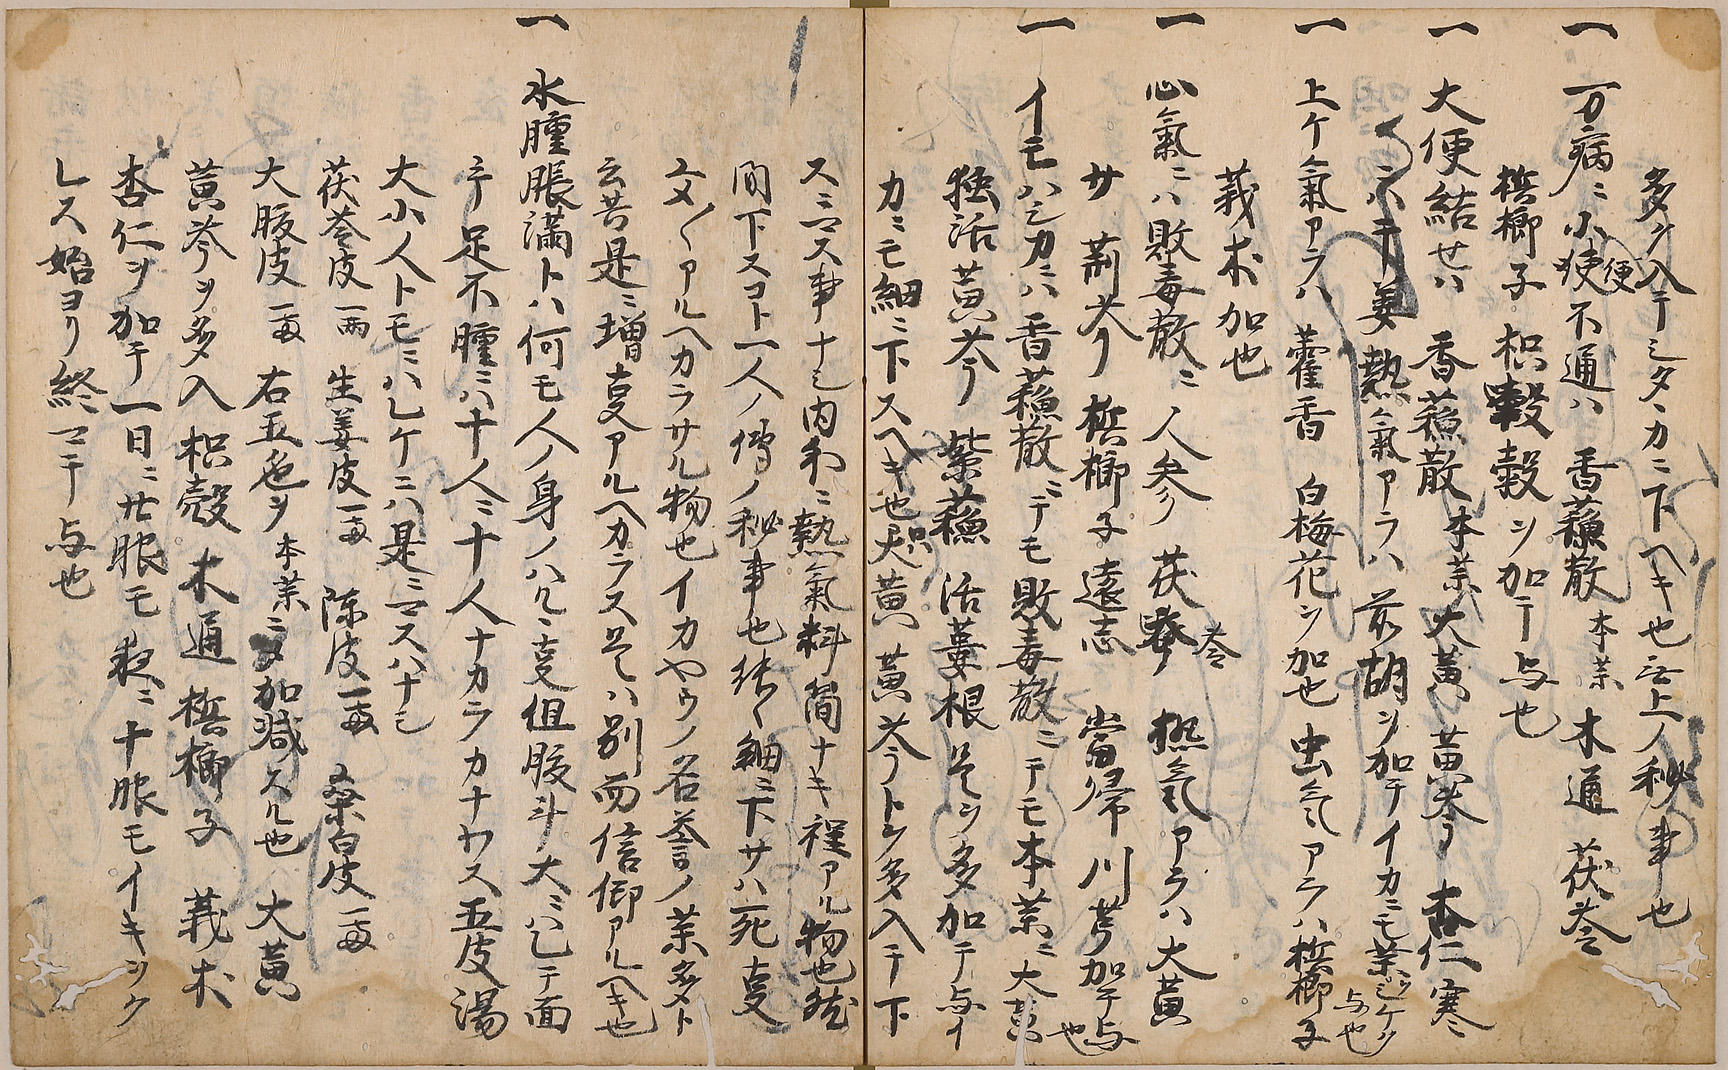 多ク入テシタヽカニ下ヘキ也無上ノ秘事也
一 万病ニ小便不通ハ 香蘓散 本薬 木通 茯苓
梹榔子 枳穀ヲ加テ与也
一 大便結セハ 香蘓散 本薬 大黄 黄芩 杏仁 寒
ハ干姜 熱氣アラハ 前胡ヲ加テイカニモ薬ヲツケヽ与也
一 上ケ氣アラハ 藿香 白梅花ヲ加也 虫気アラハ梹榔子
莪朮加也
一 心氣ニハ敗毒散ニ 人参 茯苓 熱気アラハ大黄
サ 荊芥 梹榔子 遠志 當帰 川芎加テ与也
一 イモハシカニハ香蘓散ニテモ敗毒散ニテモ本薬ニ大黄
独活 黄芩 紫蘓 活蔞根是ヲ多加テ与イ
カニモ細ニ下スヘキ也 大黄 黄芩トヲ多入テ下
スニマス事ナシ内利ニ熱氣料簡ナキ程アル物也然
間下スコト一人ノ傳ノ秘事也能々細ニ下サハ死事
文〳〵アルヘカラサル物也イカヤウノ名誉ノ薬多ト
云共是ニ増事アルヘカラス是ハ別而信仰アルヘキ也
一 水腫脹満トハ何モ人ノ身ノハルヽ事但腹斗大ニハレテ面
手足不腫ニハ十人ニ十人ナカラカナワス五皮湯
大小人トモニハレケニハ是ニマスハナシ
茯苓皮一両 生姜皮一両 陳皮一両 桑白皮一両
大腹皮一両 右五色ヲ 本薬ニ 加減スル也 大黄
黄芩ヲ多入 枳殻 木通 梹榔子 莪朮
杏仁ヲ加テ一日ニ廿服モ 夜ニ十服モイキヲク
レス始ヨリ終マテ与也